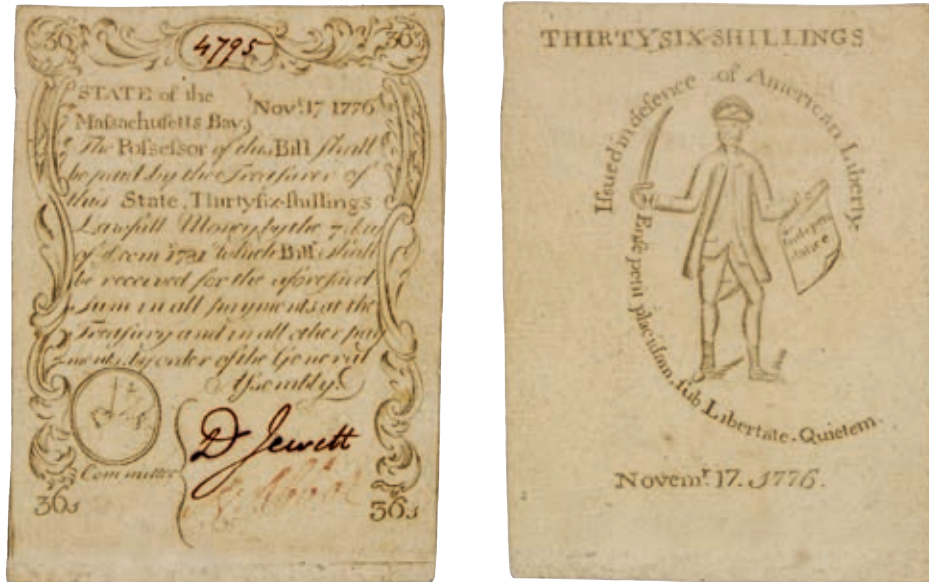 36s 4795 36s
STATE of the
Massachusetts Bay.
Nov.r 17 1776
The Possessor of this Bill shall
be paid by the Treasurer of
this State, Thirtysix-shillings
Lawfull Money, by the 7 day
of Decem 1781 which Bill shall
be received for the aforesaid
Sum in all payments at the
Treasury and in all other pay
ments by order of the General
Assembly
Committee
D Jewett
36s 36s
THIRTYSIX-SHILLINGS
Issued in defence of American Liberty.
Ense petit placidam, sub Libertate, Quietem
Independance
Novem.r 17. 1776.